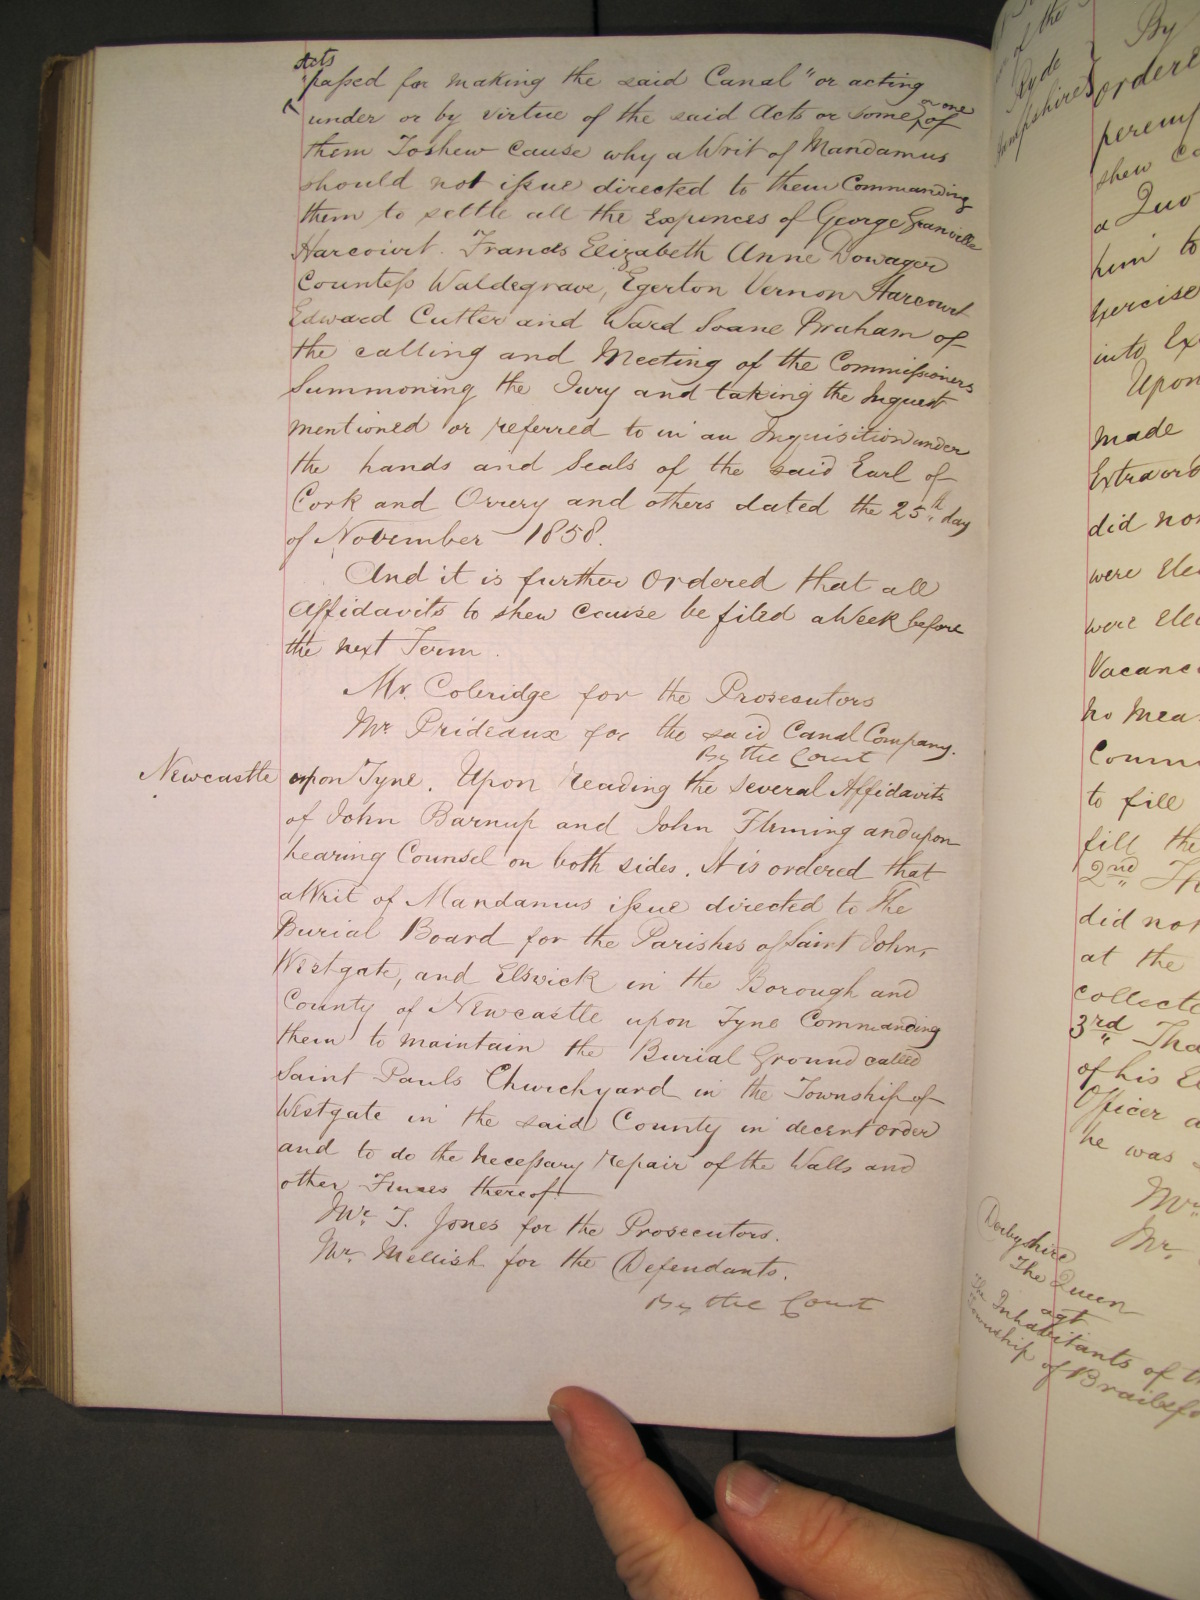 Acts
passed for making the said Canal" or acting
under or by virtue of the said Acts or some or one of
them To shew Cause why a Writ of Mandamus
should not issue directed to them Commanding
them to settle all the Expences of George Granville
Harcourt. Frances Elizabeth Anne Dowager
Countess Waldegrave, Egerton Vernon Harcourt
Edward Cutler and Ward Soane Braham of
the calling and Meeting of the Commissioners
Summoning the Jury and taking the Inquest
mentioned or referred to in an Inquisition under
the hands and Seals of the said Earl of
Cork and Orrery and others dated the 25th day
of November 1858.
And it is further Ordered that all
Affidavits to shew Cause be filed a Week before
the next Term.
Mr. Coleridge for the Prosecutors
Mr Prideaux for the said Canal Company.
By the Court
Newcastle upon Tyne. Upon reading the several Affidavits
of John Barnup and John Fleming and upon
hearing Counsel on both sides. It is ordered that
a Writ of Mandamus issue directed to The
Burial Board for the Parishes of Saint John,
Westgate, and Elswick in the Borough and
County of Newcastle upon Tyne Commanding
them to maintain the Burial Ground called
Saint Pauls Churchyard in the Township of
Westgate in the said County in decent order
and to do the necessary repair of the Walls and
other Fences thereof.
Mr. T. Jones for the Prosecutors.
Mr. Mellish for the Defendants.
By the Court
of the
Ryde
By
ordere
peremp
shew Ca
a Quo
him to
exercise
into Ex
Upon
made
Extraord
did not
were Elec
were Elec
Vacanc
no Mea
Counc
to fill
fill the
2nd Th
did not
at the
collecte
3rd Tha
of his El
Officer a
he was
Mr
Mr.
Derbyshire
The Queen
agt
The Inhabitants of th
Township of Brailsfo